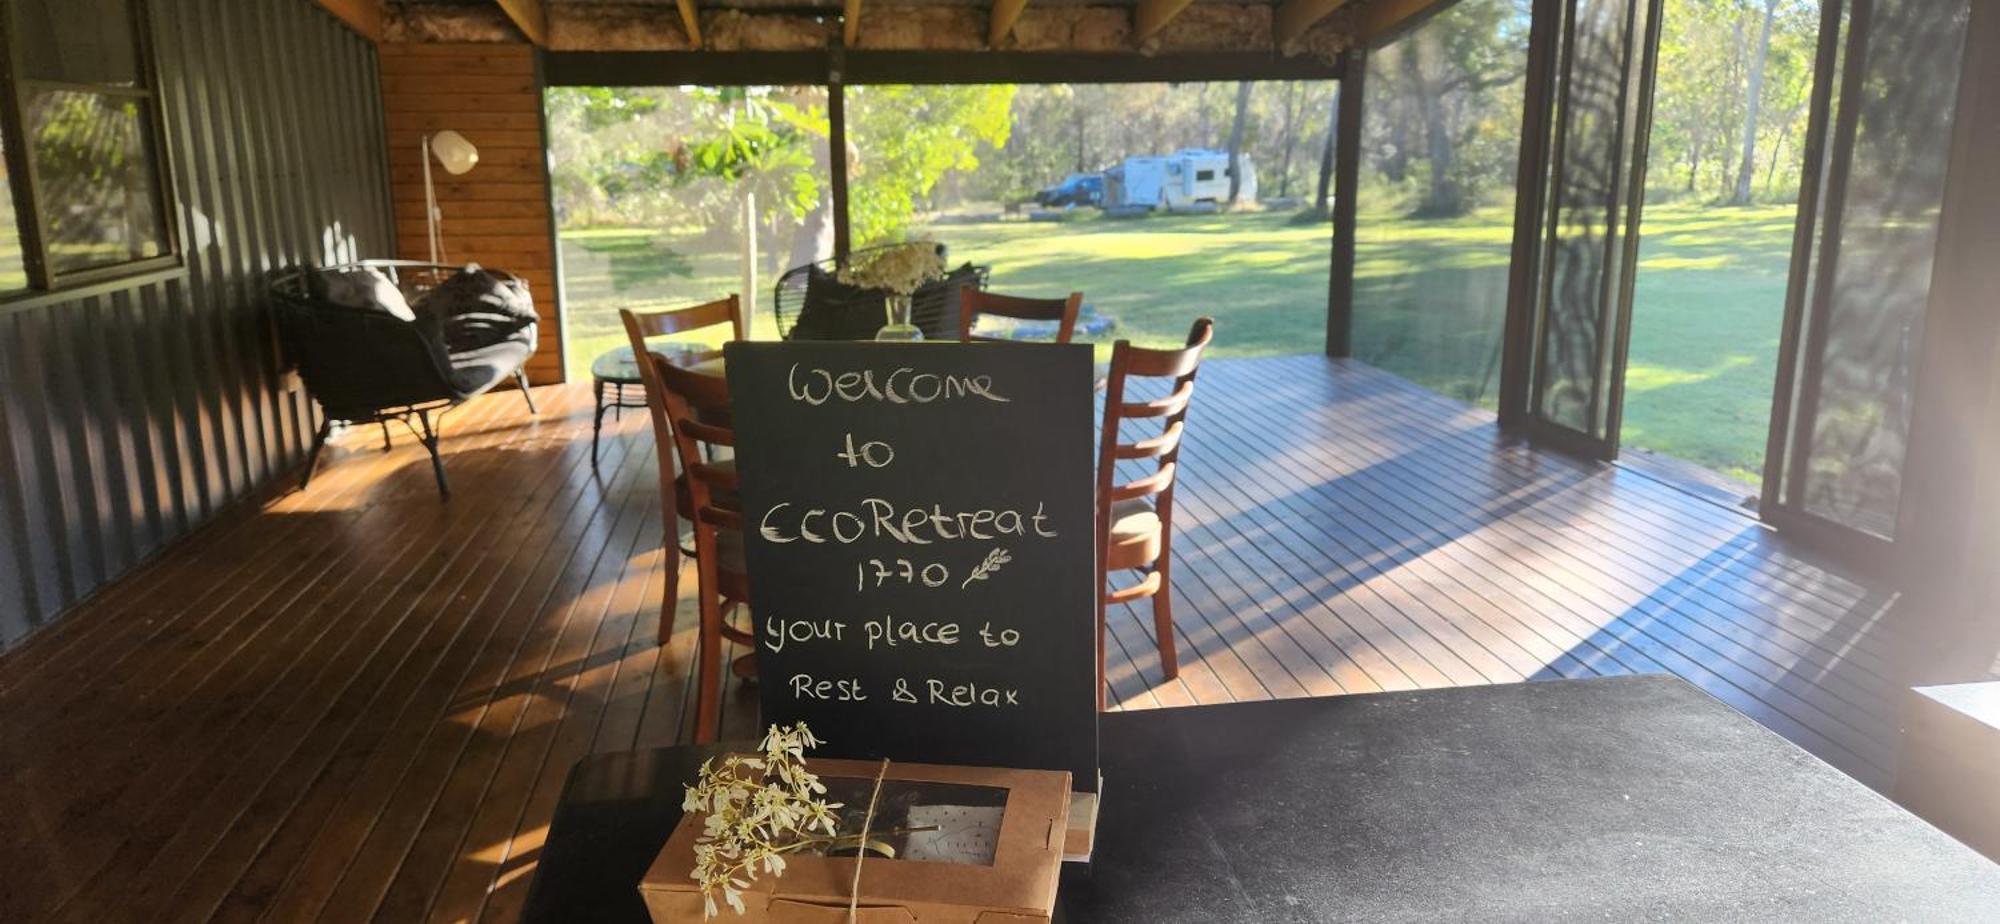 Welcome
to
EcoRetreat
1770
your place to
Rest & Relax